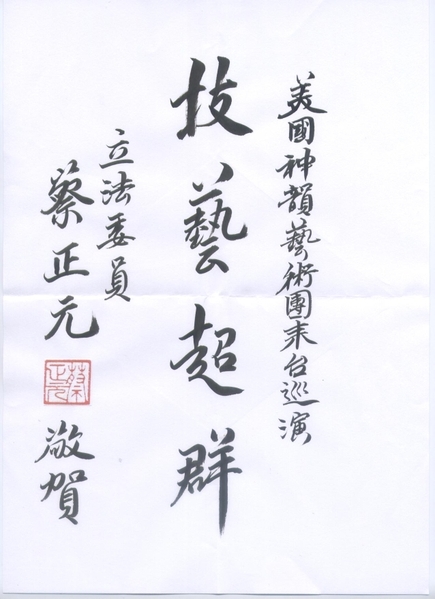 美國神韻藝術團来台巡演
技藝超群
立法委員
蔡正元
蔡正元
敬賀